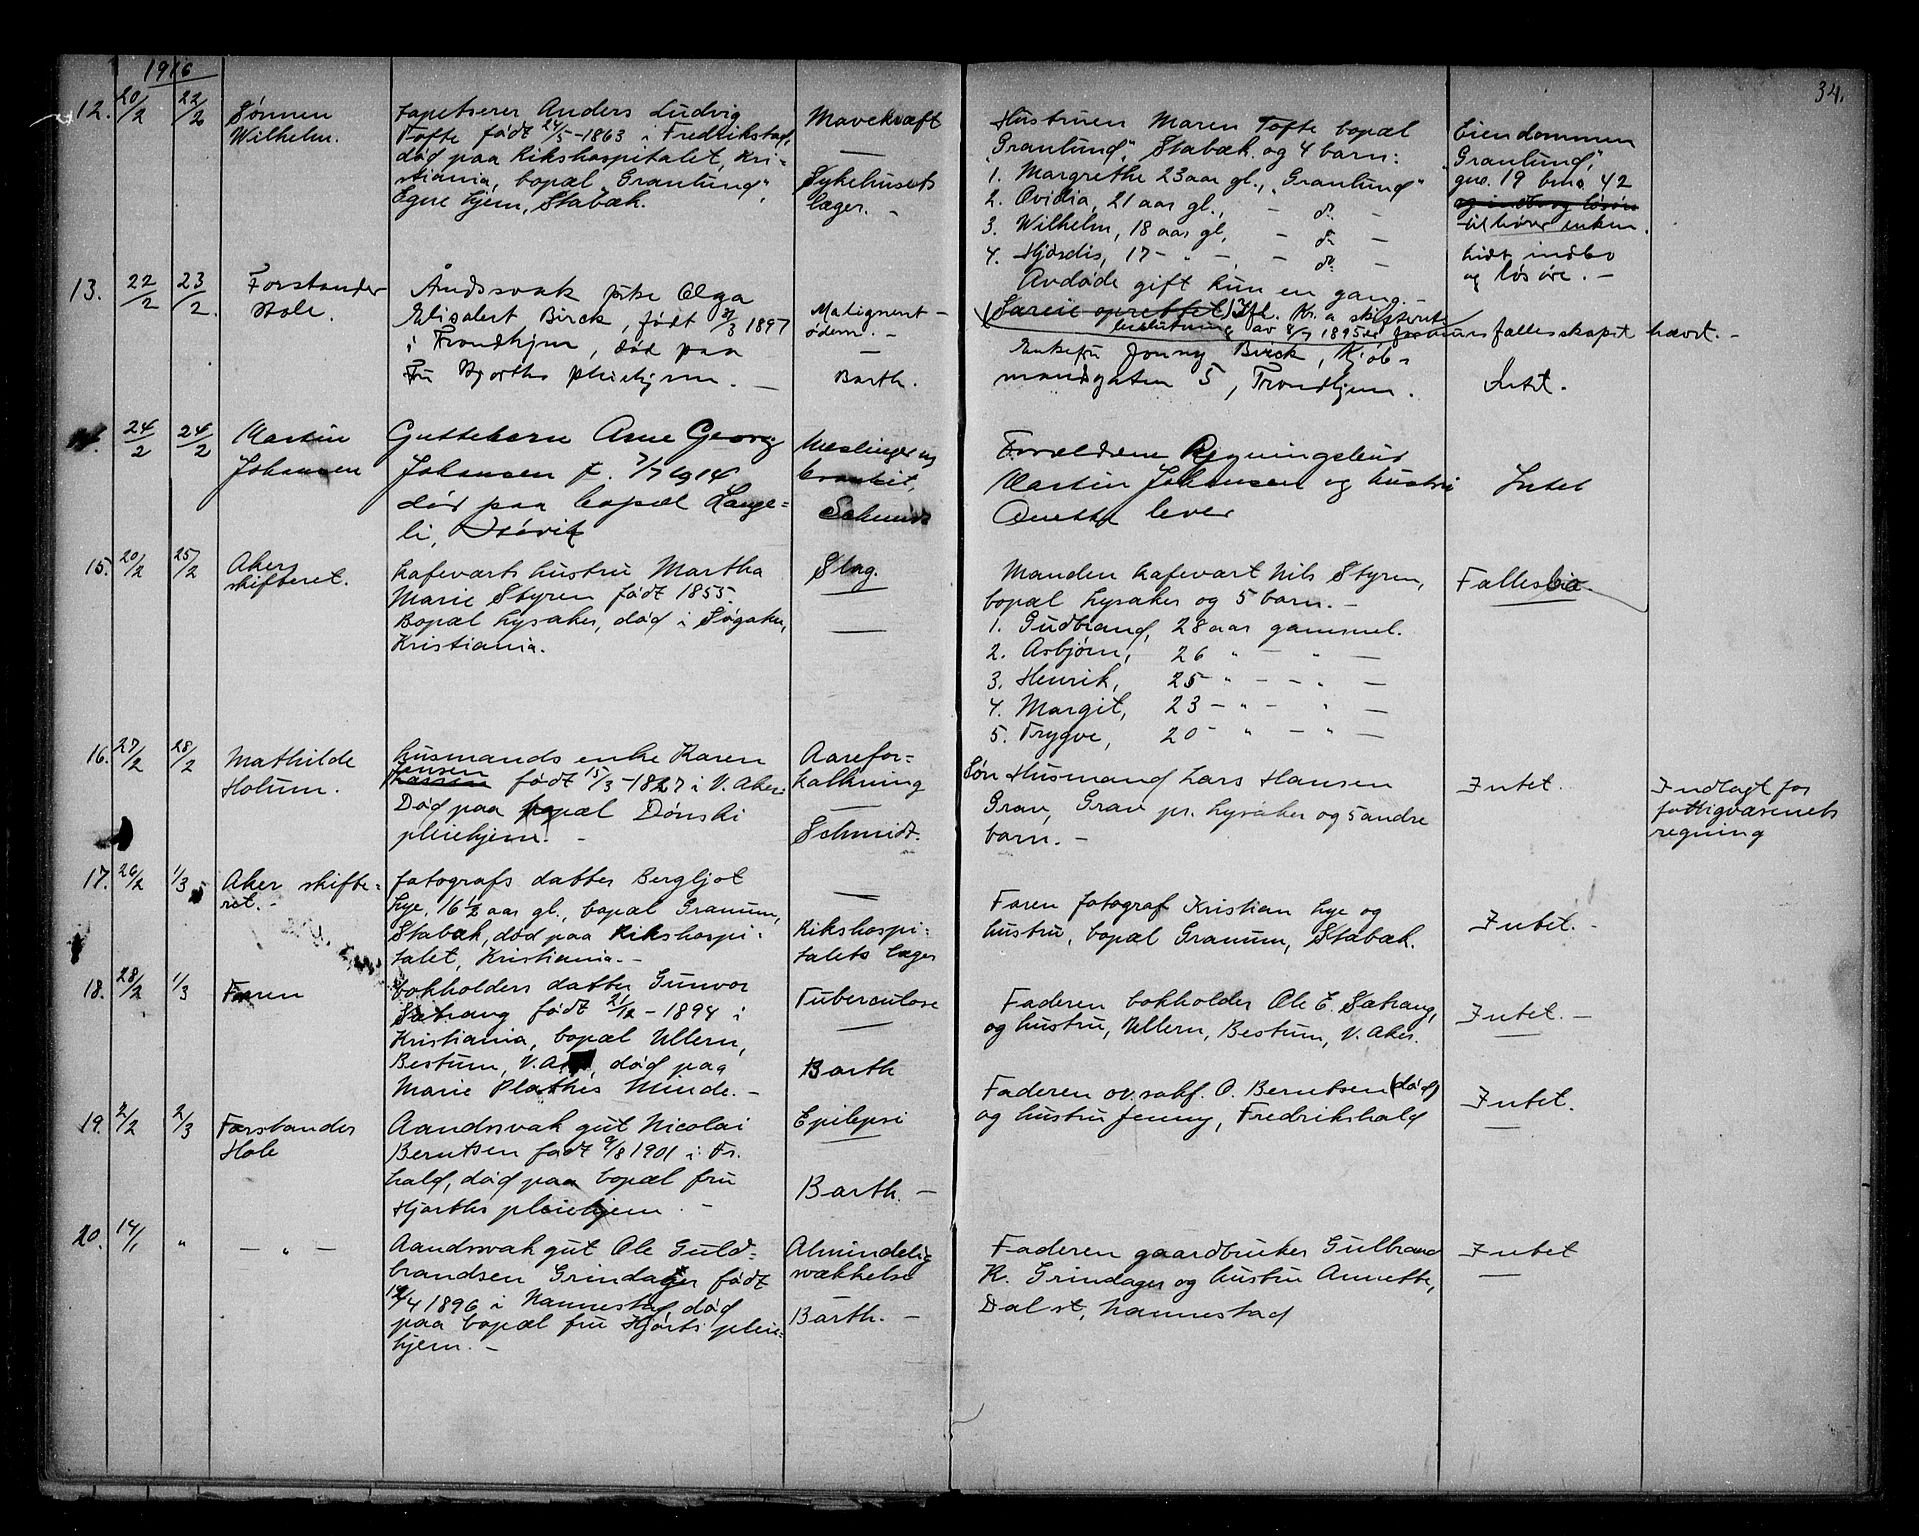 1916
34.
12. 20/2 22/2
Sønnen
Wilhelm.
Tapetserer Anders Ludvig
Tofte født 24/5-1863 i Fredrikstad,
død paa Rikshospitalet, Kri-
stiania, bopæl "Granlund",
Egne hjem, Stabæk.
Mavekræft
Sykehusets
læger. -
Hustruen Maren Tofte bopæl
"Granlund", Stabæk og 4 barn:
1. Margrethe 23 aar gl., "Granlund"
2. Ovidia, 21 aar gl., - do -
3. Wilhelm, 18 aar gl, - do -
4. Hjørdis, 17 - " - , - do -
Avdøde gift kun en gang. -
Eiendommen
"Granlund",
gno. 19 bno 42
og indbo og løsøre
tilhører enken.
Lidt indbo
og løsøre. -
13. 22/2 23/2.
Forstander
Hole.
Åndssvak pike Olga
Elisabet Birck, født 31/3 1897
i Trondhjem, død paa
Fru Hjorths pleiehjem. -
Malignent
ødem. -
Barth.
beslutning av 8/7 1895
fællesskapet hævet. -
Enkefru Jonny Birck, Kjøb-
mandsgaten 5, Trondhjem.
Intet.
14. 24/2 24/2
Martin
Johansen
Guttebarn Arne Georg
Johansen f. 7/7 1914
død paa bopæl Lange-
li,
Meslinger og
bronkit,
Schmidt
Forældrene
Martin Johansen og hustru
Anette lever
Intet
15. 20/2 25/2
Aker
skifteret.
Kafeværts hustru Martha
Marie Styren født 1855.
Bopæl Lysaker, død i Søgaten,
Kristiania.
Slag.
Manden kafevært Nils Styren,
bopæl Lysaker og 5 barn. -
1. Gudbrand, 28 aar gammel.
2. Asbjørn, 26 " - " -
3. Henrik, 25 - " - - " -
4. Margit, 23 - " - " -
5. Trygve, 20 - " - " -
Fællesbo.
16. 27/2 28/2
Mathilde
Holum.
Husmands enke Karen
Jensen
Hansen født 15/3-1827 i V. Aker.
Død paa bopæl Dønski
pleiehjem. -
Aarefor-
kalkning
Schmidt.
Søn Husmand Lars Hansen
Grav, Grav pr. Lysaker og 5 andre
barn. -
Intet.
Indlagt for
fattigvæsenets
regning
17. 26/2 1/3
Aker skifte-
ret. -
Fotografs datter Bergljot
Lye, 16 1/2 aar gl., bopæl Granum,
Stabæk, død paa Rikshospi-
talet, Kristiania. -
Rikshospi-
talets læger
Faren fotograf Kristian Lye og
hustru, bopæl Granum, Stabæk.
Intet. -
18. 28/2 1/3
Faren
Bokholders datter Gunvor
Sætrang født 21/12-1894 i
Kristiania, bopæl Ullern,
Bestum, V. A, død paa
Marie Plathes Minde. -
Tuberculose
Barth
Faderen bokholder Ole E. Sætrang,
og hustru, Ullern, Bestum, V. Aker.
Intet. -
19. 2/2 2/3
Forstander
Hole
Aandssvak gut Nicolai
Berntsen født 9/8 1901 i Fr.
hald, død paa bopæl fru
Hjorths pleiehjem. -
Epilepsi
Barth. -
Faderen ov.sakf. O. Berntsen (død)
og hustru Jenny, Fredrikshald
Intet.
20. 14/1 " - " -
Aandssvak gut Ole Guld-
brandsen Grindager født
12/4 1896 i Nannestad, død
paa bopæl fru Hjorts pleie-
hjem. -
Almindelig
svækkelse
Barth. -
Faderen gaardbruker Gulbrand
K. Grindager og hustru Annette,
Dal st, Nannestad
Intet